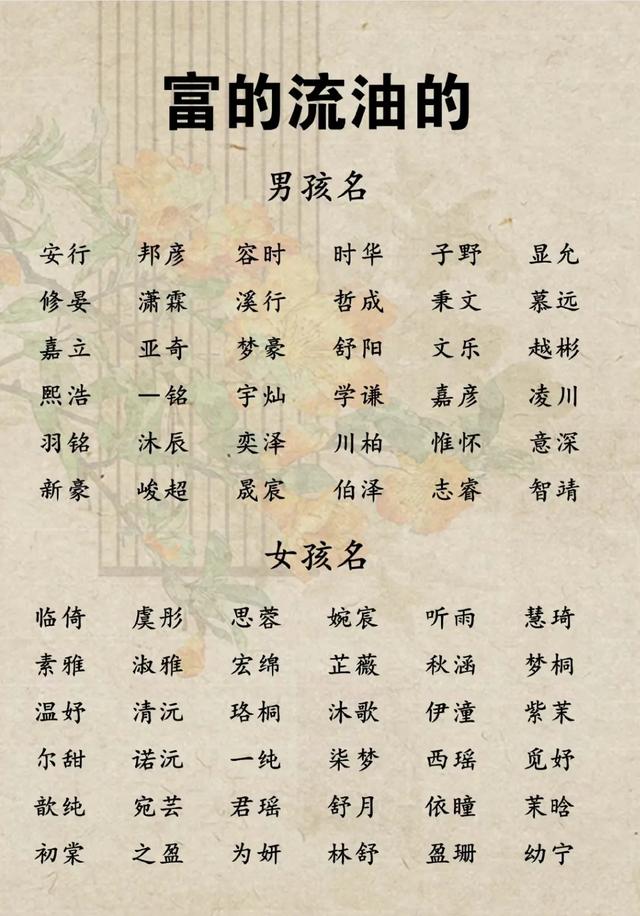 富的流油的
男孩名
安行 邦彦 容时 时华 子野 显允
修晏 潇霖 溪行 哲成 秉文 慕远
嘉立 亚奇 梦豪 舒阳 文乐 越彬
熙浩 一铭 宇灿 学谦 嘉彦 凌川
羽铭 沐辰 奕泽 川柏 惟怀 意深
新豪 峻超 晟宸 伯泽 志睿 智靖
女孩名
临倚 虞彤 思蓉 婉宸 听雨 慧琦
素雅 淑雅 宏绵 芷薇 秋涵 梦桐
温妤 清沅 珞桐 沐歌 伊潼 紫茉
尔甜 诺沅 一纯 柒梦 西瑶 觅妤
歆纯 宛芸 君瑶 舒月 依瞳 茉晗
初棠 之盈 为妍 林舒 盈珊 幼宁